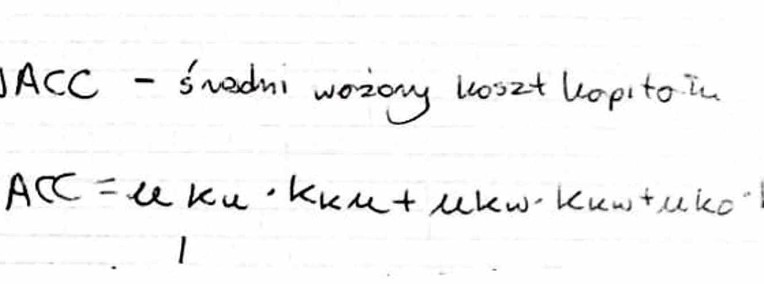 WACC - średni ważony koszt kapitału
ACC = uku · kku + ukw · kkw + uko ·